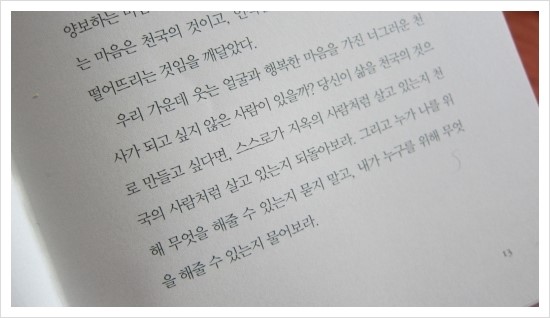 양보하는 마음
는 마음은 천국의 것이고,
떨어뜨리는 것임을 깨달았다.
우리 가운데 웃는 얼굴과 행복한 마음을 가진 너그러운 천
사가 되고 싶지 않은 사람이 있을까? 당신이 삶을 천국의 것으
로 만들고 싶다면, 스스로가 지옥의 사람처럼 살고 있는지 천
국의 사람처럼 살고 있는지 되돌아보라. 그리고 누가 나를 위
해 무엇을 해줄 수 있는지 묻지 말고, 내가 누구를 위해 무엇
을 해줄 수 있는지 물어보라.
13